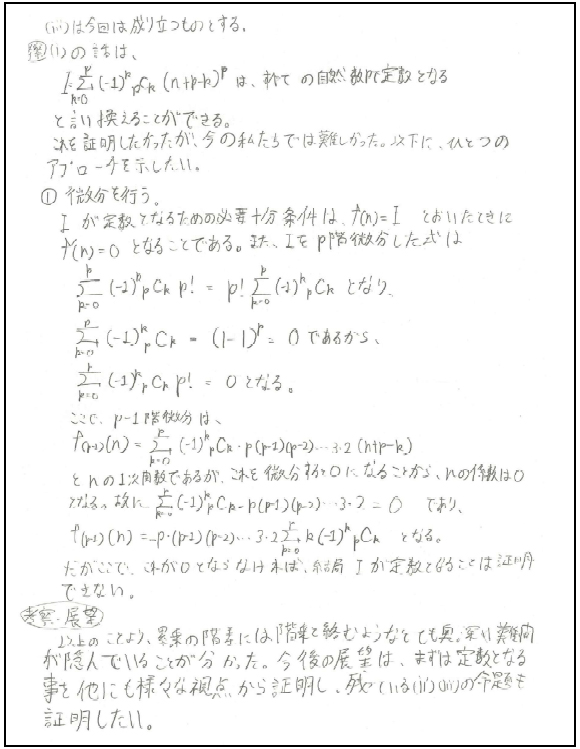 (iii)は今回は成り立つものとする。
(i)の話は、
I=Σ[k=0→p](-1)^k pCk (n+p-k)^p は、全ての自然数pで定数となる
と言い換えることができる。
これを証明したかったが、今の私たちでは難しかった。以下に、ひとつの
アプローチを示したい。
① 微分を行う。
I が定数となるための必要十分条件は、f(n)=I とおいたときに
f'(n)=0 となることである。また、Iをp階微分した式は
Σ[k=0→p](-1)^k pCk p! = p! Σ[k=0→p](-1)^k pCk となり、
Σ[k=0→p](-1)^k pCk = (1-1)^p = 0 であるから、
Σ[k=0→p](-1)^k pCk p! = 0 となる。
ここで、p-1階微分は、
f(p-1)(n) = Σ[k=0→p](-1)^k pCk・p(p-1)(p-2)…3・2(n+p-k)
とnの1次関数であるが、これを微分すると0になることから、nの係数は0
となる。故に Σ[k=0→p](-1)^k pCk・p(p-1)(p-2)…3・2 = 0 であり、
f(p-1)(n) = -p・(p-1)(p-2)…3・2 Σ[k=0→p] k(-1)^k pCk となる。
だがここで、これが0とならなければ、結局 I が定数となることは証明
できない。
考察・展望
以上のことより、累乗の階差には、階乗と絡むようなとても奥深い難問
が隠れていることが分かった。今後の展望は、まずは定数となる
事を他にも様々な視点から証明し、残っている(ii)(iii)の命題も
証明したい。